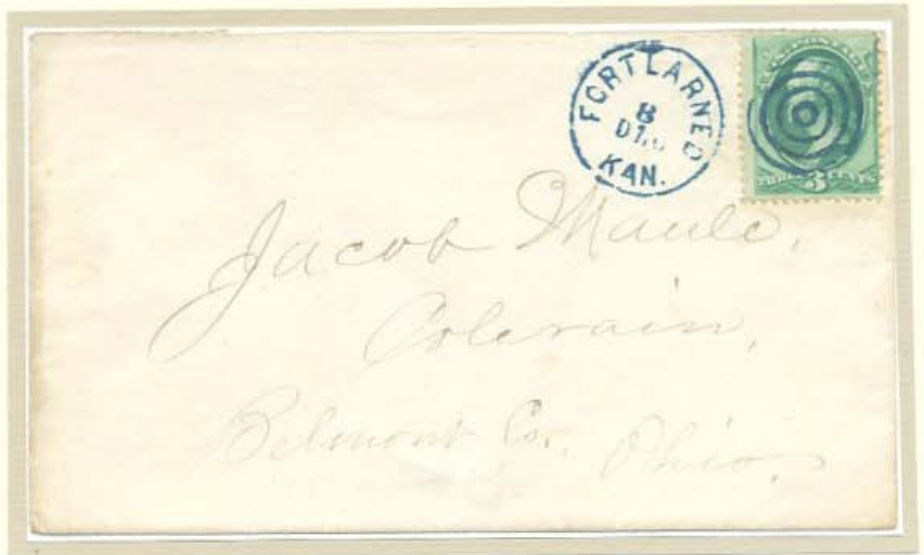 FORT LARNED
8
DEC
KAN.
3 CENTS
Jacob Maule,
Colerain,
Belmont Co. Ohio.